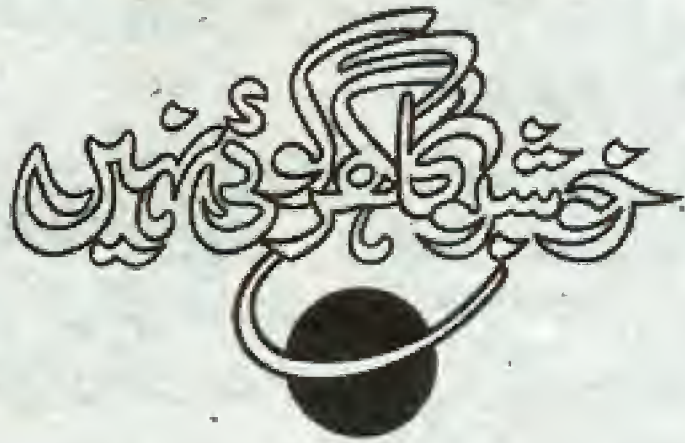 خوشبو کا گھر کوئی نہیں